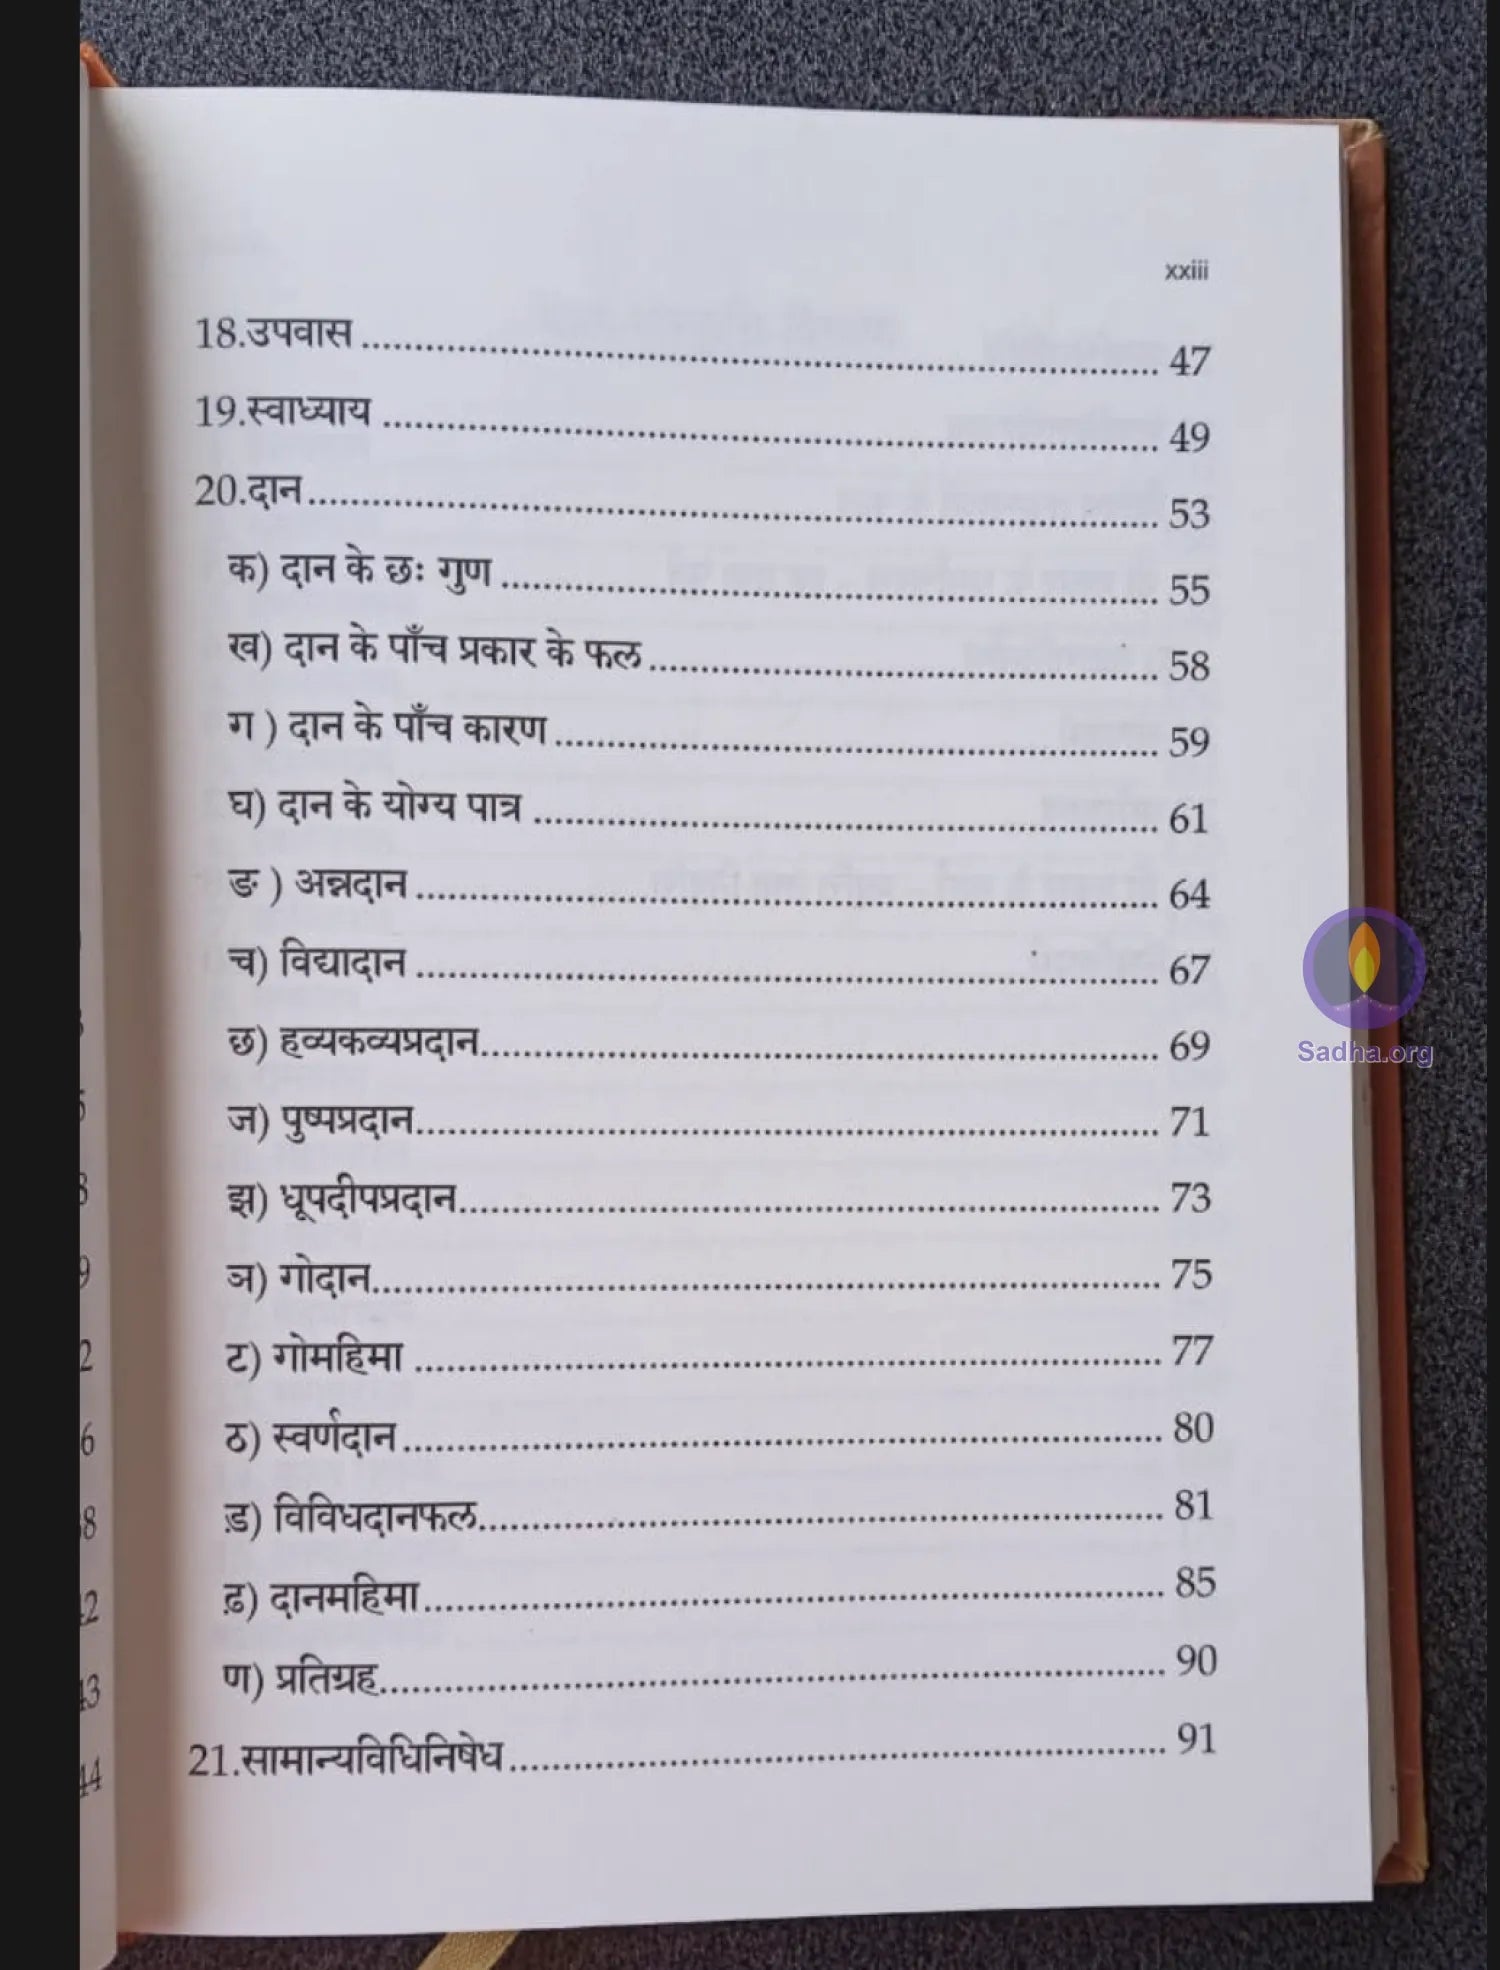 xxiii
18.उपवास ........ 47
19.स्वाध्याय ........ 49
20.दान ........ 53
क) दान के छः गुण ........ 55
ख) दान के पाँच प्रकार के फल ........ 58
ग ) दान के पाँच कारण ........ 59
घ) दान के योग्य पात्र ........ 61
ङ ) अन्नदान ........ 64
च) विद्यादान ........ 67
छ) हव्यकव्यप्रदान ........ 69
ज) पुष्पप्रदान ........ 71
झ) धूपदीपप्रदान ........ 73
ञ) गोदान ........ 75
ट) गोमहिमा ........ 77
ठ) स्वर्णदान ........ 80
ड़) विविधदानफल ........ 81
ढ़) दानमहिमा ........ 85
ण) प्रतिग्रह ........ 90
21.सामान्यविधिनिषेध ........ 91
Sadha.org